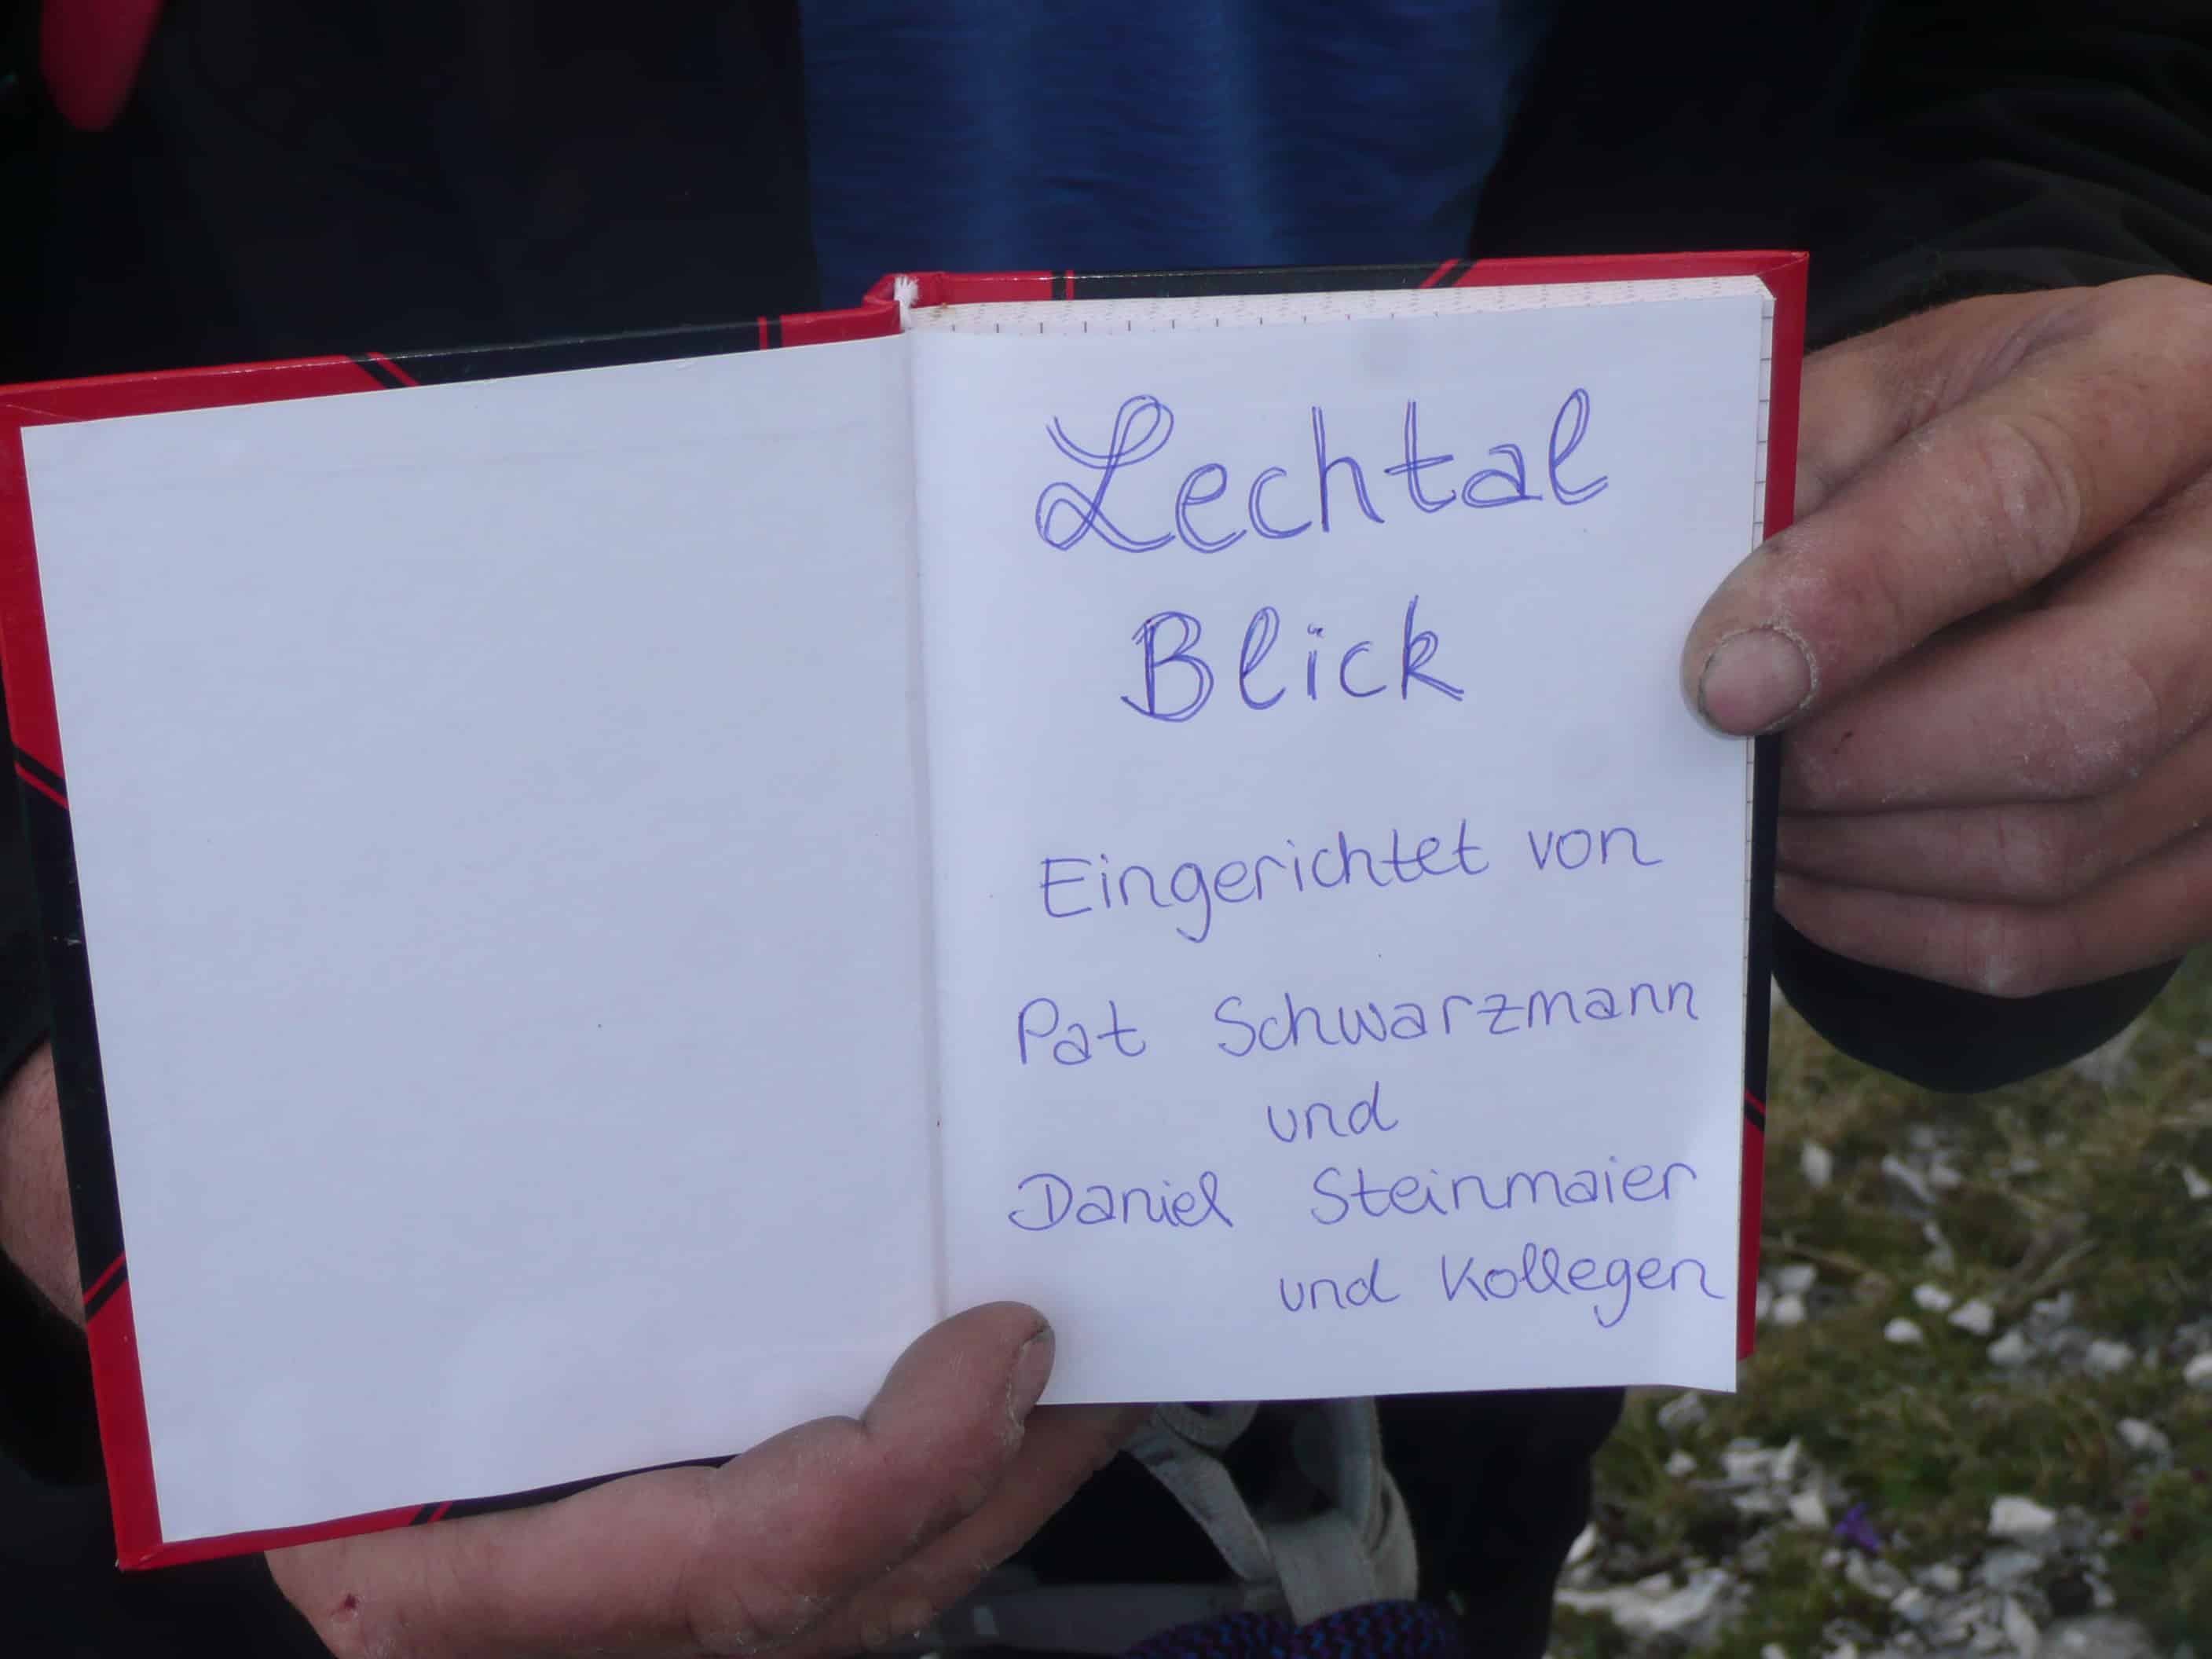 Lechtal
Blick
Eingerichtet von
Pat Schwarzmann
und
Daniel Steinmaier
und Kollegen